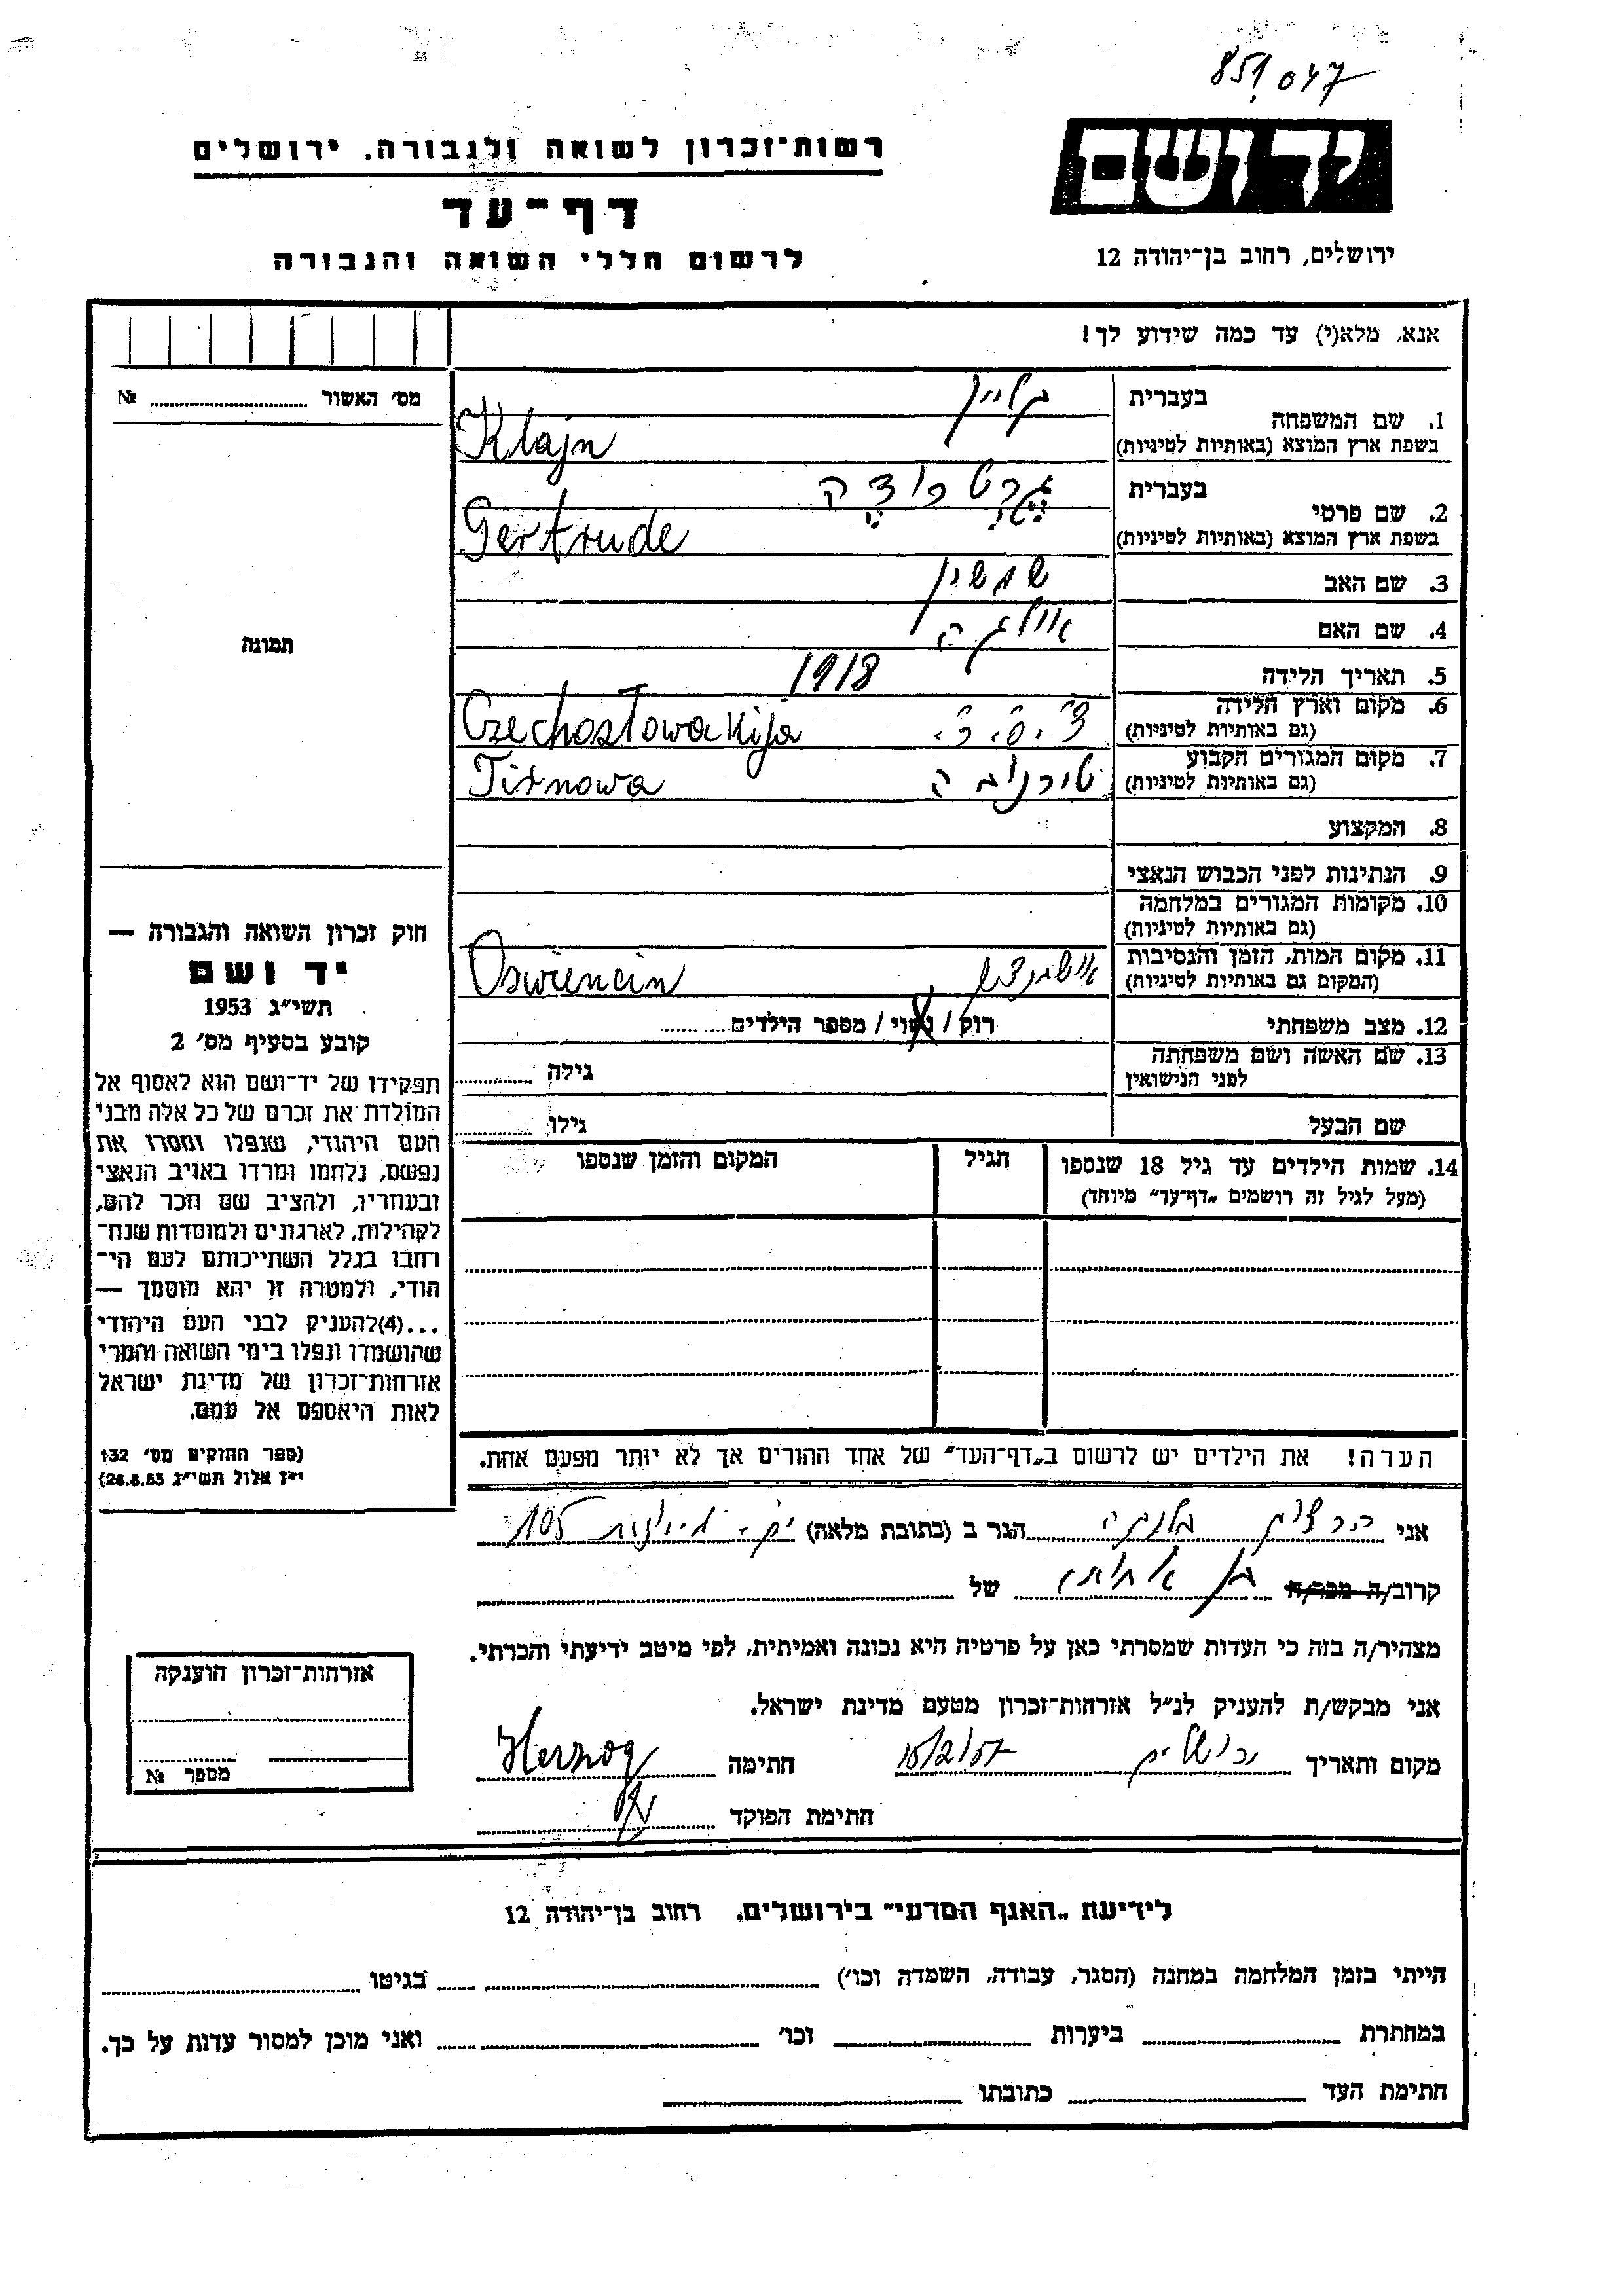 851047
רשות־זכרון לשואה ולגבורה, ירושלים
יד ושם
דף־עד
לרשום חללי השואה והגבורה
ירושלים, רחוב בן־יהודה 12
אנא, מלא(י) עד כמה שידוע לך!
מס׳ האשור № 
1. שם המשפחה בעברית קליין
בשפת ארץ המוצא (באותיות לטיניות) Klajn
2. שם פרטי בעברית גרטרודה
בשפת ארץ המוצא (באותיות לטיניות) Gertrude
3. שם האב
4. שם האם אולגה
תמונה
5. תאריך הלידה 1918
6. מקום וארץ הלידה צ׳.ס.ר.
(גם באותיות לטיניות) Czechosłowakija
7. מקום המגורים הקבוע טירנובה
(גם באותיות לטיניות) Tirnowa
8. המקצוע
9. הנתינות לפני הכבוש הנאצי
10. מקומות המגורים במלחמה
(גם באותיות לטיניות)
11. מקום המות, הזמן והנסיבות
(המקום גם באותיות לטיניות) Oswiencin
12. מצב משפחתי רוק / נשוי / מספר הילדים
13. שם האשה ושם משפחתה
לפני הנישואין גילה
שם הבעל גילו
14. שמות הילדים עד גיל 18 שנספו הגיל המקום והזמן שנספו
(מעל לגיל זה רושמים „דף־עד״ מיוחד)
חוק זכרון השואה והגבורה —
יד ושם
תשי״ג 1953
קובע בסעיף מס׳ 2
תפקידו של יד־ושם הוא לאסוף אל
המולדת את זכרם של כל אלה מבני
העם היהודי, שנפלו ומסרו את
נפשם, נלחמו ומרדו באויב הנאצי
ובעוזריו, ולהציב שם וזכר להם,
לקהילות, לארגונים ולמוסדות שנח־
רחבו בגלל השתייכותם לעם הי־
הודי, ולמטרה זו יהא מוסמך —
...(4)להעניק לבני העם היהודי
שהושמדו ונפלו בימי השואה והמרי
אזרחות־זכרון של מדינת ישראל
לאות היאספם אל עמם.
(ספר החוקים מס׳ 132
י״ז אלול תשי״ג 28.8.53)
הערה! את הילדים יש לרשום ב„דף־העד״ של אחד ההורים אך לא יותר מפעם אחת.
אני הרצוג הגר ב (כתובת מלאה) 105
קרוב/ה מכר/ה של
מצהיר/ה בזה כי העדות שמסרתי כאן על פרטיה היא נכונה ואמיתית, לפי מיטב ידיעתי והכרתי.
אני מבקש/ת להעניק לנ״ל אזרחות־זכרון מטעם מדינת ישראל.
מקום ותאריך ירושלים 15/2/57 חתימה Herzog
חתימת הפוקד
אזרחות־זכרון הוענקה
מספר №
לידיעת „האגף המדעי״ בירושלים, רחוב בן־יהודה 12
הייתי בזמן המלחמה במחנה (הסגר, עבודה, השמדה וכו׳) בגיטו
במחתרת ביערות וכו׳ ואני מוכן למסור עדות על כך.
חתימת העד כתובתו